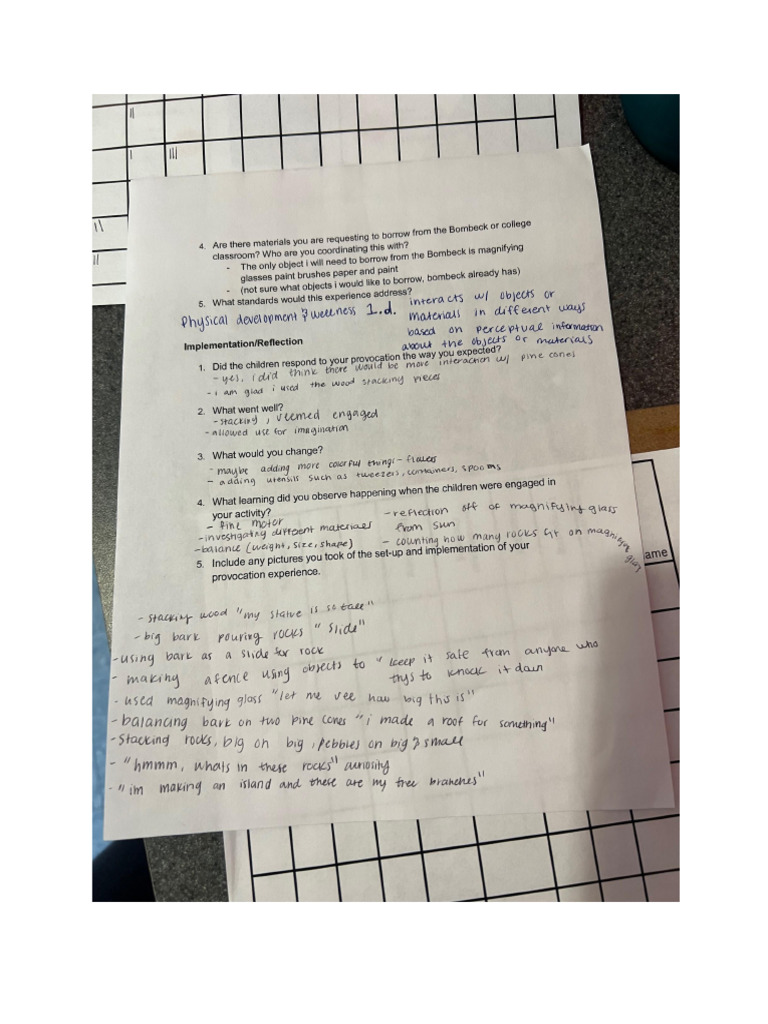 ||
|
|||
||
||
4. Are there materials you are requesting to borrow from the Bombeck or college
classroom? Who are you coordinating this with?
- The only object i will need to borrow from the Bombeck is magnifying
glasses paint brushes paper and paint
- (not sure what objects i would like to borrow, bombeck already has)
5. What standards would this experience address?
Physical development & wellness 1.d. interacts w/ objects or
materials in different ways
based on perceptual information
about the objects or materials
Implementation/Reflection
1. Did the children respond to your provocation the way you expected?
- yes, i did think there would be more interaction w/ pine cones
- i am glad i used the wood stacking pieces
2. What went well?
- stacking, seemed engaged
- allowed use for imagination
3. What would you change?
- maybe adding more colorful things - flowers
- adding utensils such as tweezers, containers, spoons
4. What learning did you observe happening when the children were engaged in
your activity?
- fine motor
- investigating different materials
- balance (weight, size, shape)
- reflection off of magnifying glass
from sun
- counting how many rocks fit on magnifying
glass
5. Include any pictures you took of the set-up and implementation of your
provocation experience.
- stacking wood "my statue is so tall"
- big bark pouring rocks "slide"
- using bark as a slide for rock
- making a fence using objects to "keep it safe from anyone who
trys to knock it down
- used magnifying glass "let me see how big this is"
- balancing bark on two pine cones "i made a roof for something"
- stacking rocks, big on big, pebbles on big & small
- "hmmm, whats in these rocks" curiosity
- "im making an island and these are my tree branches"
ame